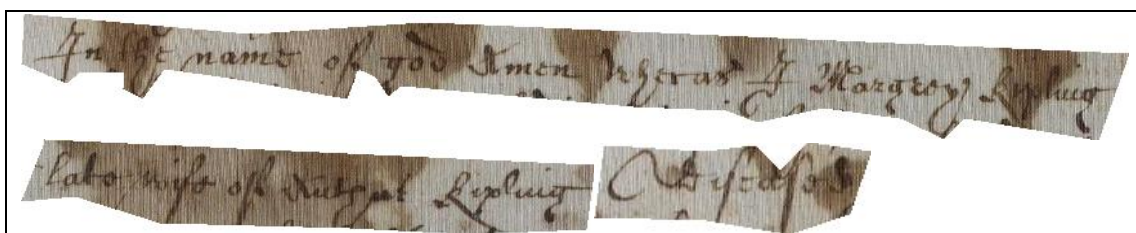 In the name of god Amen Wheras I Margrey Kipling
late wife of Kipling Diseased